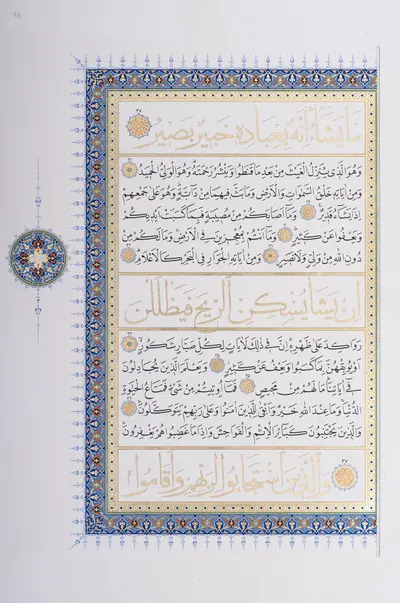 مَا يَشَاءُ إِنَّهُ بِعِبَادِهِ خَبِيرٌ بَصِيرٌ ٢٧
وَهُوَ الَّذِي يُنَزِّلُ الْغَيْثَ مِنْ بَعْدِ مَا قَنَطُوا وَيَنْشُرُ رَحْمَتَهُ وَهُوَ الْوَلِيُّ الْحَمِيدُ
وَمِنْ آيَاتِهِ خَلْقُ السَّمٰوَاتِ وَالْأَرْضِ وَمَا بَثَّ فِيهِمَا مِنْ دَابَّةٍ وَهُوَ عَلَى جَمْعِهِمْ
إِذَا يَشَاءُ قَدِيرٌ وَمَا أَصَابَكُمْ مِنْ مُصِيبَةٍ فَبِمَا كَسَبَتْ أَيْدِيكُمْ
وَيَعْفُوا عَنْ كَثِيرٍ وَمَا أَنْتُمْ بِمُعْجِزِينَ فِي الْأَرْضِ وَمَا لَكُمْ مِنْ
دُونِ اللهِ مِنْ وَلِيٍّ وَلَا نَصِيرٍ وَمِنْ آيَاتِهِ الْجَوَارِ فِي الْبَحْرِ كَالْأَعْلَامِ
إِنْ يَشَأْ يُسْكِنِ الرِّيحَ فَيَظْلَلْنَ
رَوَاكِدَ عَلَى ظَهْرِهِ إِنَّ فِي ذٰلِكَ لَآيَاتٍ لِكُلِّ صَبَّارٍ شَكُورٍ
أَوْ يُوبِقْهُنَّ بِمَا كَسَبُوا وَيَعْفُ عَنْ كَثِيرٍ وَيَعْلَمَ الَّذِينَ يُجَادِلُونَ
فِي آيَاتِنَا مَا لَهُمْ مِنْ مَحِيصٍ فَمَا أُوتِيتُمْ مِنْ شَيْءٍ فَمَتَاعُ الْحَيٰوةِ
الدُّنْيَا وَمَا عِنْدَ اللهِ خَيْرٌ وَأَبْقَى لِلَّذِينَ آمَنُوا وَعَلَى رَبِّهِمْ يَتَوَكَّلُونَ
وَالَّذِينَ يَجْتَنِبُونَ كَبَائِرَ الْإِثْمِ وَالْفَوَاحِشَ وَإِذَا مَا غَضِبُوا هُمْ يَغْفِرُونَ
٣٧ وَالَّذِينَ اسْتَجَابُوا لِرَبِّهِمْ وَأَقَامُوا